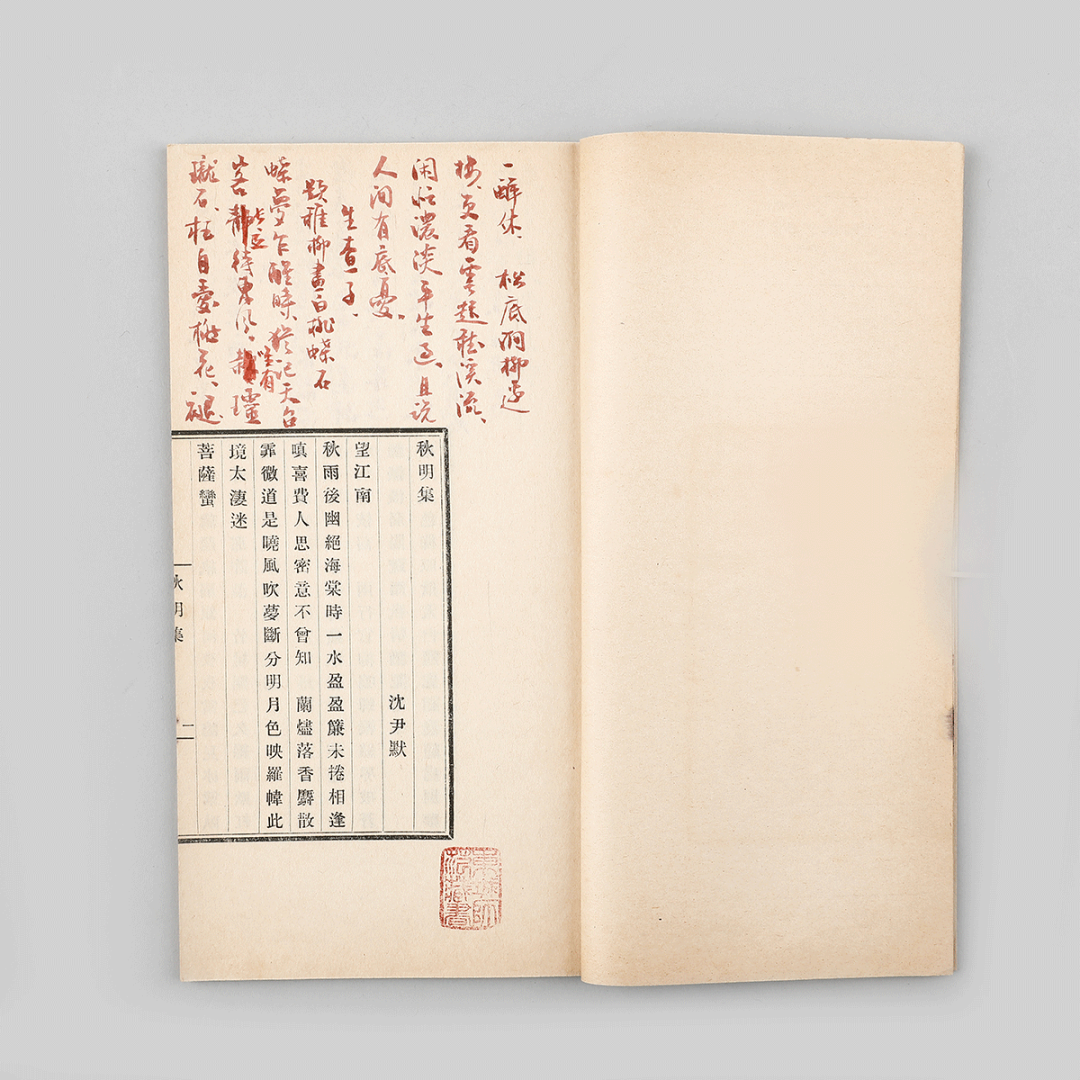 一醉休、松底閣柳邊
樓、更看雲起聽溪流、
闲忙濃淡平生
人间有底憂、
生查子、
題稚柳畫白桃蝶石
蝶夢乍醒時、猶記天台
客靜待東風、
瓏石、枉自憂桃花、褪
秋明集
沈尹默
望江南
秋雨後幽絕海棠時一水盈盈簾未捲相逢
嗔喜費人思密意不曾知　蘭燼落香麝散
霏微道是曉風吹夢斷分明月色映羅幃此
境太淒迷
菩薩蠻
秋明集
二